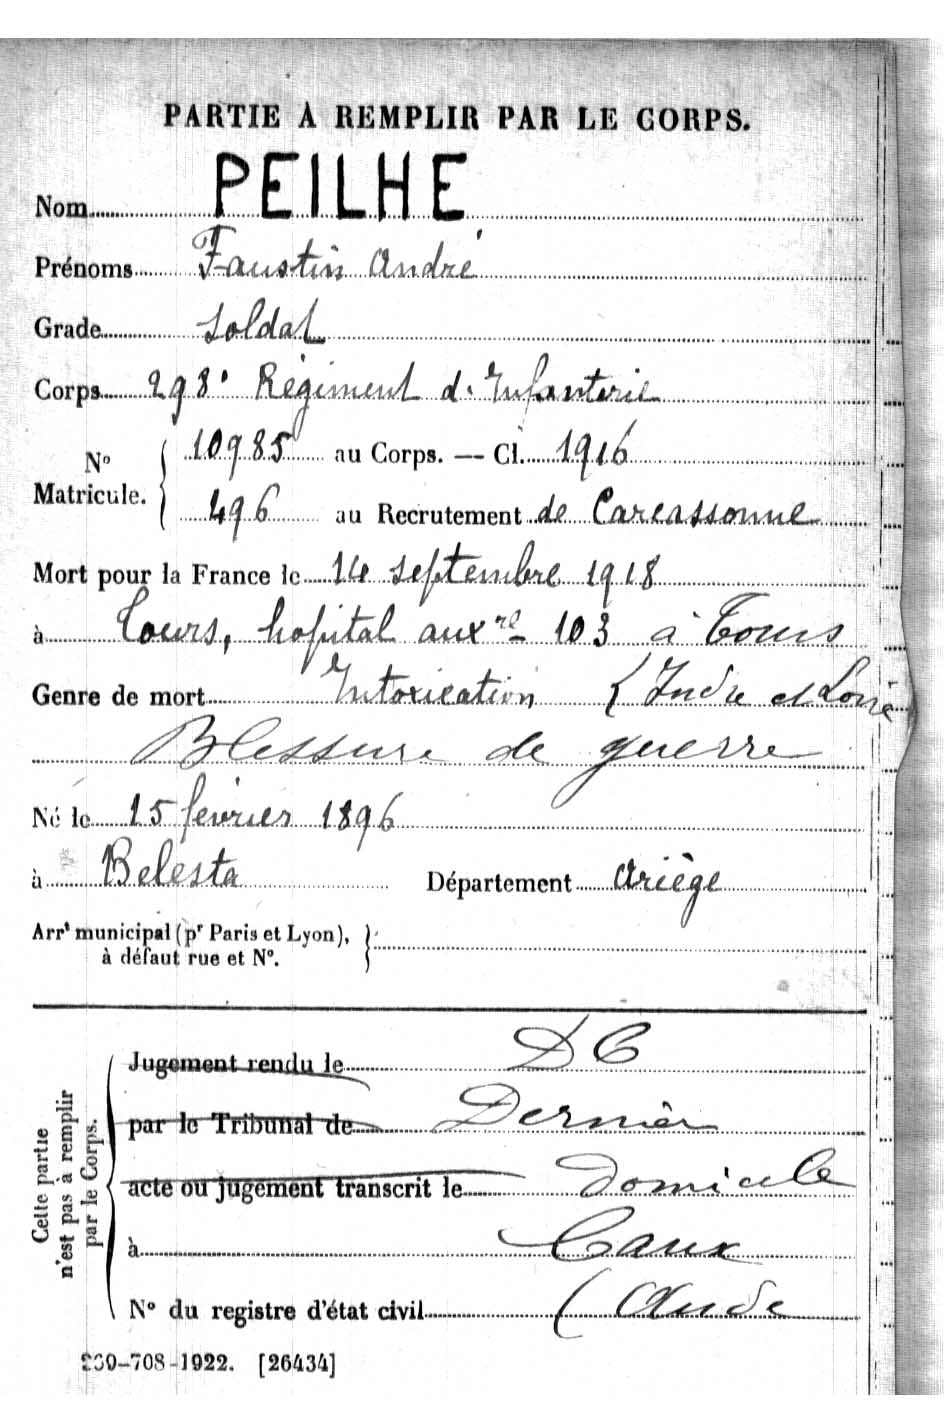 PARTIE À REMPLIR PAR LE CORPS.
Nom PEILHE
Prénoms Faustin André
Grade Soldat
Corps 298e Régiment d'Infanterie
No Matricule. 10985 au Corps. — Cl. 1916
496 au Recrutement de Carcassonne
Mort pour la France le 14 septembre 1918
à Tours, hopital auxre 103 à Tours
Genre de mort Intoxication (Indre et Loire
Blessure de guerre
Né le 15 février 1896
à Belesta Département Ariège
Arrt municipal (pr Paris et Lyon),
à défaut rue et No.
Cette partie
n'est pas à remplir
par le Corps.
Jugement rendu le DC
par le Tribunal de Dernier
acte ou jugement transcrit le Domicile
à Caux
No du registre d'état civil (Aude
-708-1922. [26434]